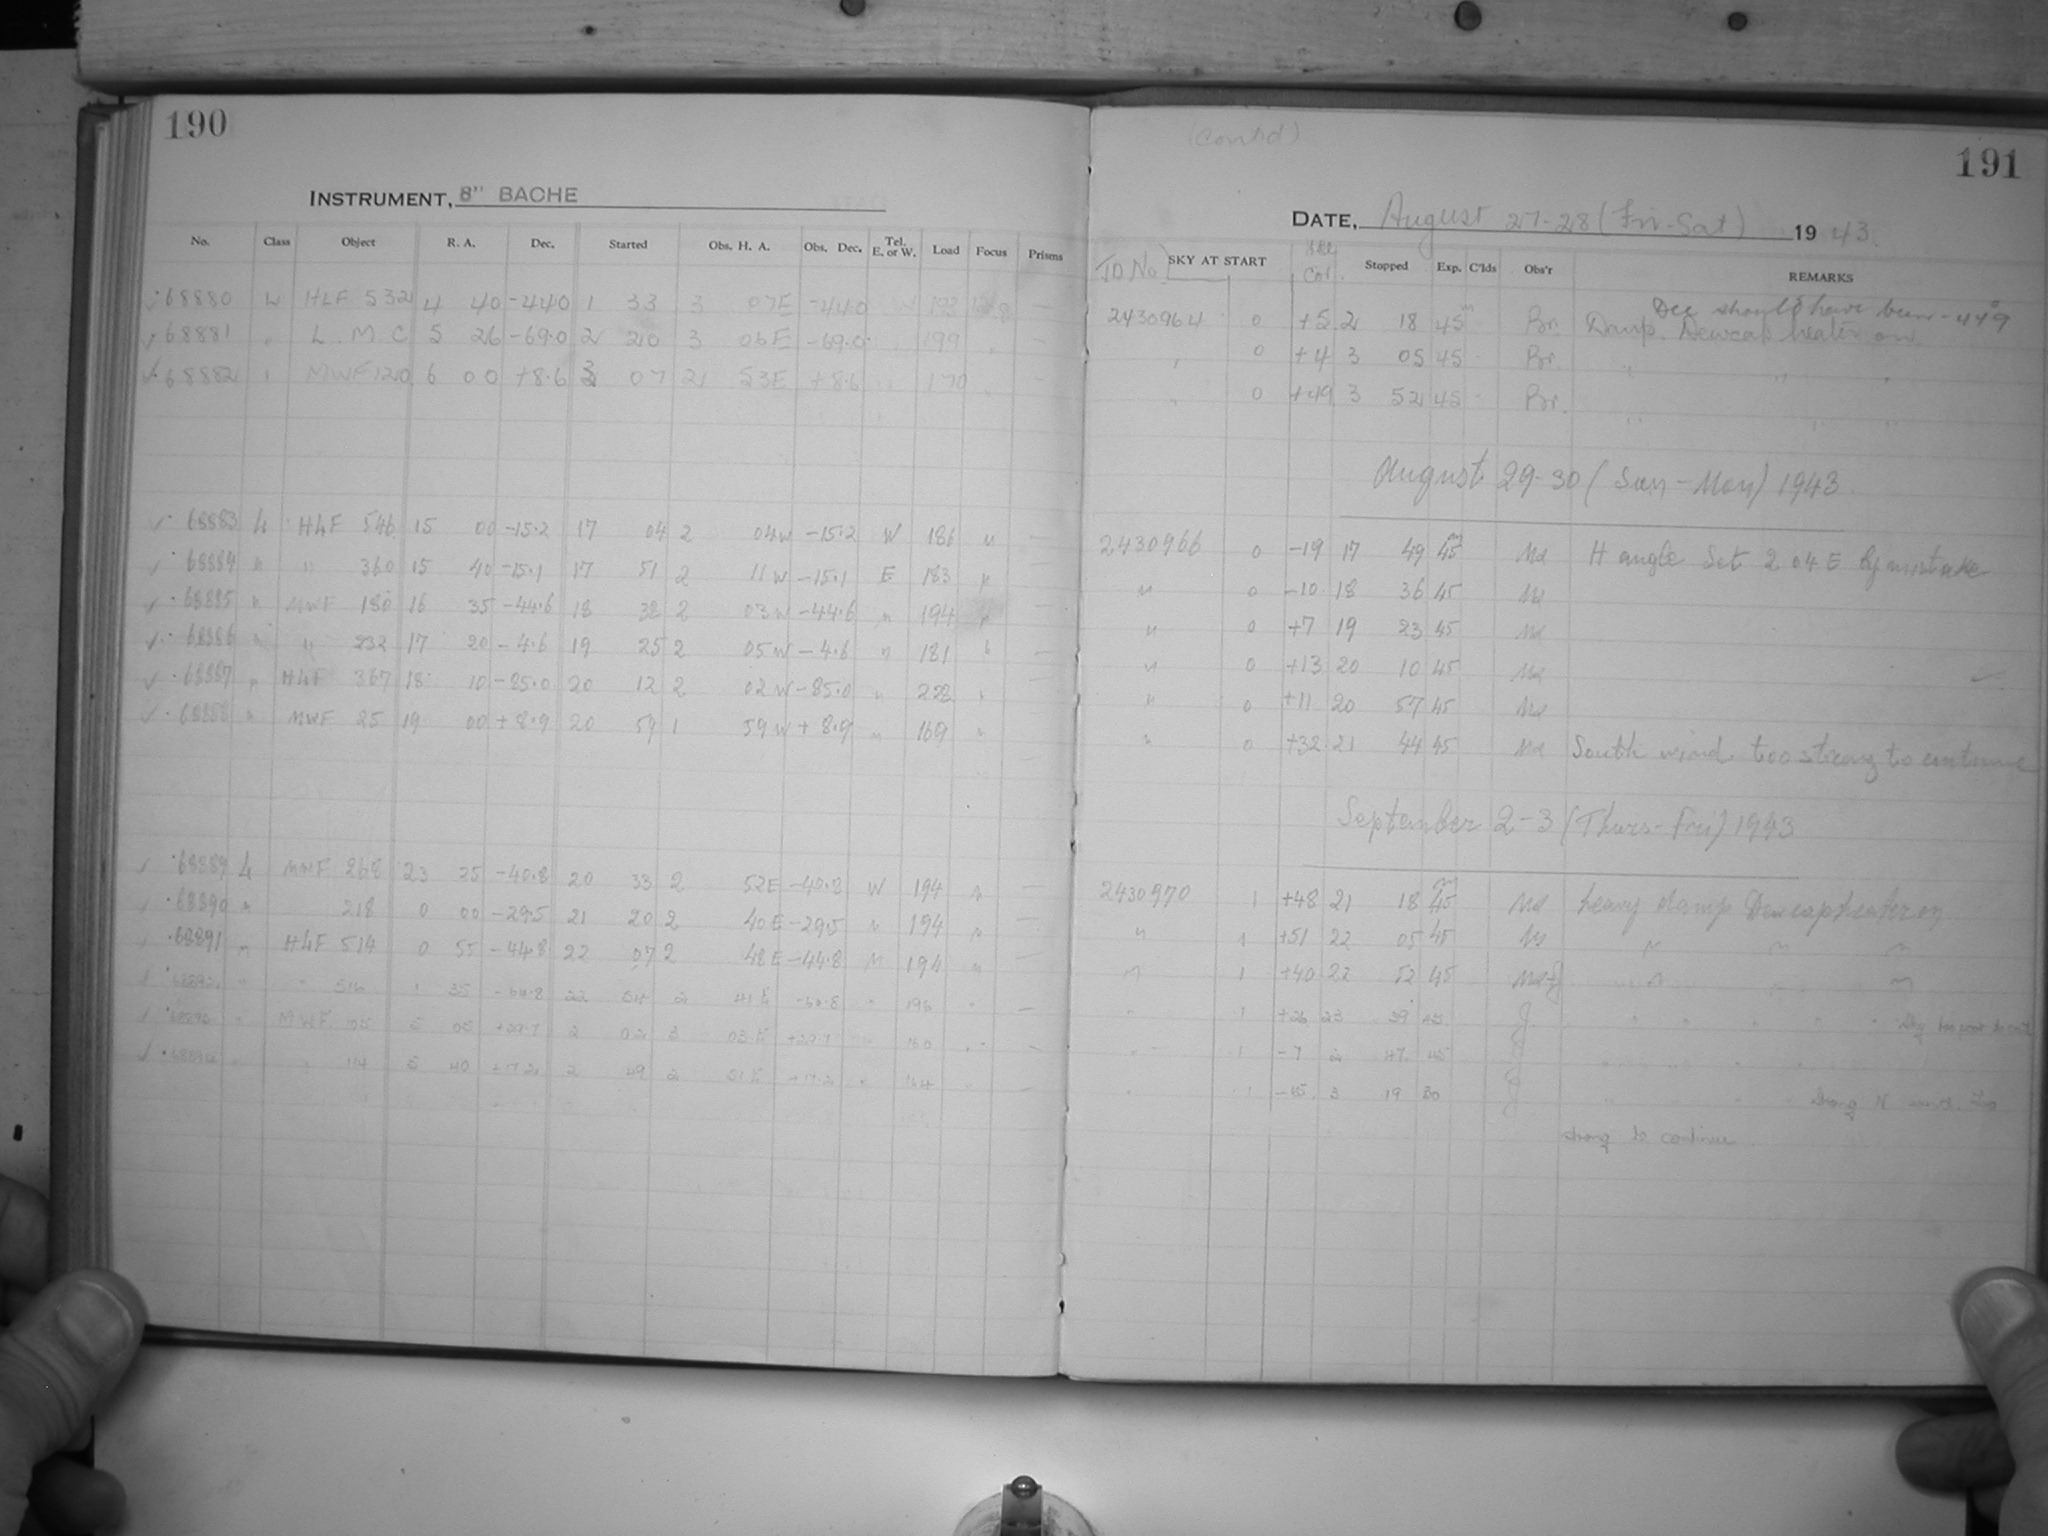 190
INSTRUMENT, 8" BACHE
No. Class Object R. A. Dec. Started Obs. H. A. Obs. Dec. Tel. E. or W. Load Focus Prisms
68880 L H4F 532 4 40 -44.0 1 33 3 07E -44.0 W 193
68881 " L.M.C 5 26 -69.0 2 20 3 06E -69.0 " 199 " —
68882 " MWF 120 6 00 +8.6 3 07 2 53E +8.6 " 170 " —
68883 L H4F 546 15 00 -15.2 17 04 2 04W -15.2 W 186 " —
68884 " " 360 15 40 -15.1 17 51 2 11W -15.1 E 183 " —
68885 " MWF 180 16 35 -44.6 18 38 2 03W -44.6 " 194 " —
68886 " " 232 17 20 -4.6 19 25 2 05W -4.6 " 181 " —
68887 " H4F 367 18 10 -85.0 20 12 2 02W -85.0 " 228 " —
68888 " MWF 25 19 00 +8.9 20 59 1 59W +8.9 " 169 " —
68889 L MWF 268 23 25 -40.8 20 33 2 52E -40.8 W 194 " —
68890 " 218 0 00 -29.5 21 20 2 40E -29.5 " 194 " —
68891 " H4F 514 0 55 -44.8 22 07 2 48E -44.8 " 194 " —
68892 " " 516 1 35 22 54 2 41E " 196 " —
68893 " MWF 105 5 05 +29.7 2 02 3 03E +29.7 " 160 " —
68894 " " 114 5 40 +17.2 2 49 2 51E +17.2 " 164 " —
(Cont'd)
191
DATE, August 27-28 (Fri-Sat) 1943.
JD No. SKY AT START Cor. Stopped Exp. C'lds Obs'r REMARKS
Dec should have been -44.9
2430964 0 +5 2 18 45m Br. Damp. Dewcap heater on
" 0 +4 3 05 45 Br. " " "
" 0 +49 3 52 45 Br. " " "
August 29-30 (Sun-Mon) 1943
2430966 0 -19 17 49 45m H angle set 2 04 E by mistake
" 0 -10 18 36 45
" 0 +7 19 23 45
" 0 +13 20 10 45
" 0 +11 20 57 45
" 0 +32 21 44 45 South wind too strong to continue
September 2-3 (Thurs-Fri) 1943
2430970 1 +48 21 18 45m heavy damp Dewcap heater on
" 1 +51 22 05 45 " " "
" 1 +40 22 52 45 " " "
" 1 +26 23 39 45 J " " " "
" 1 -7 2 47 45 J
" 1 -45 3 19 30 J " " " " Strong N wind too
strong to continue